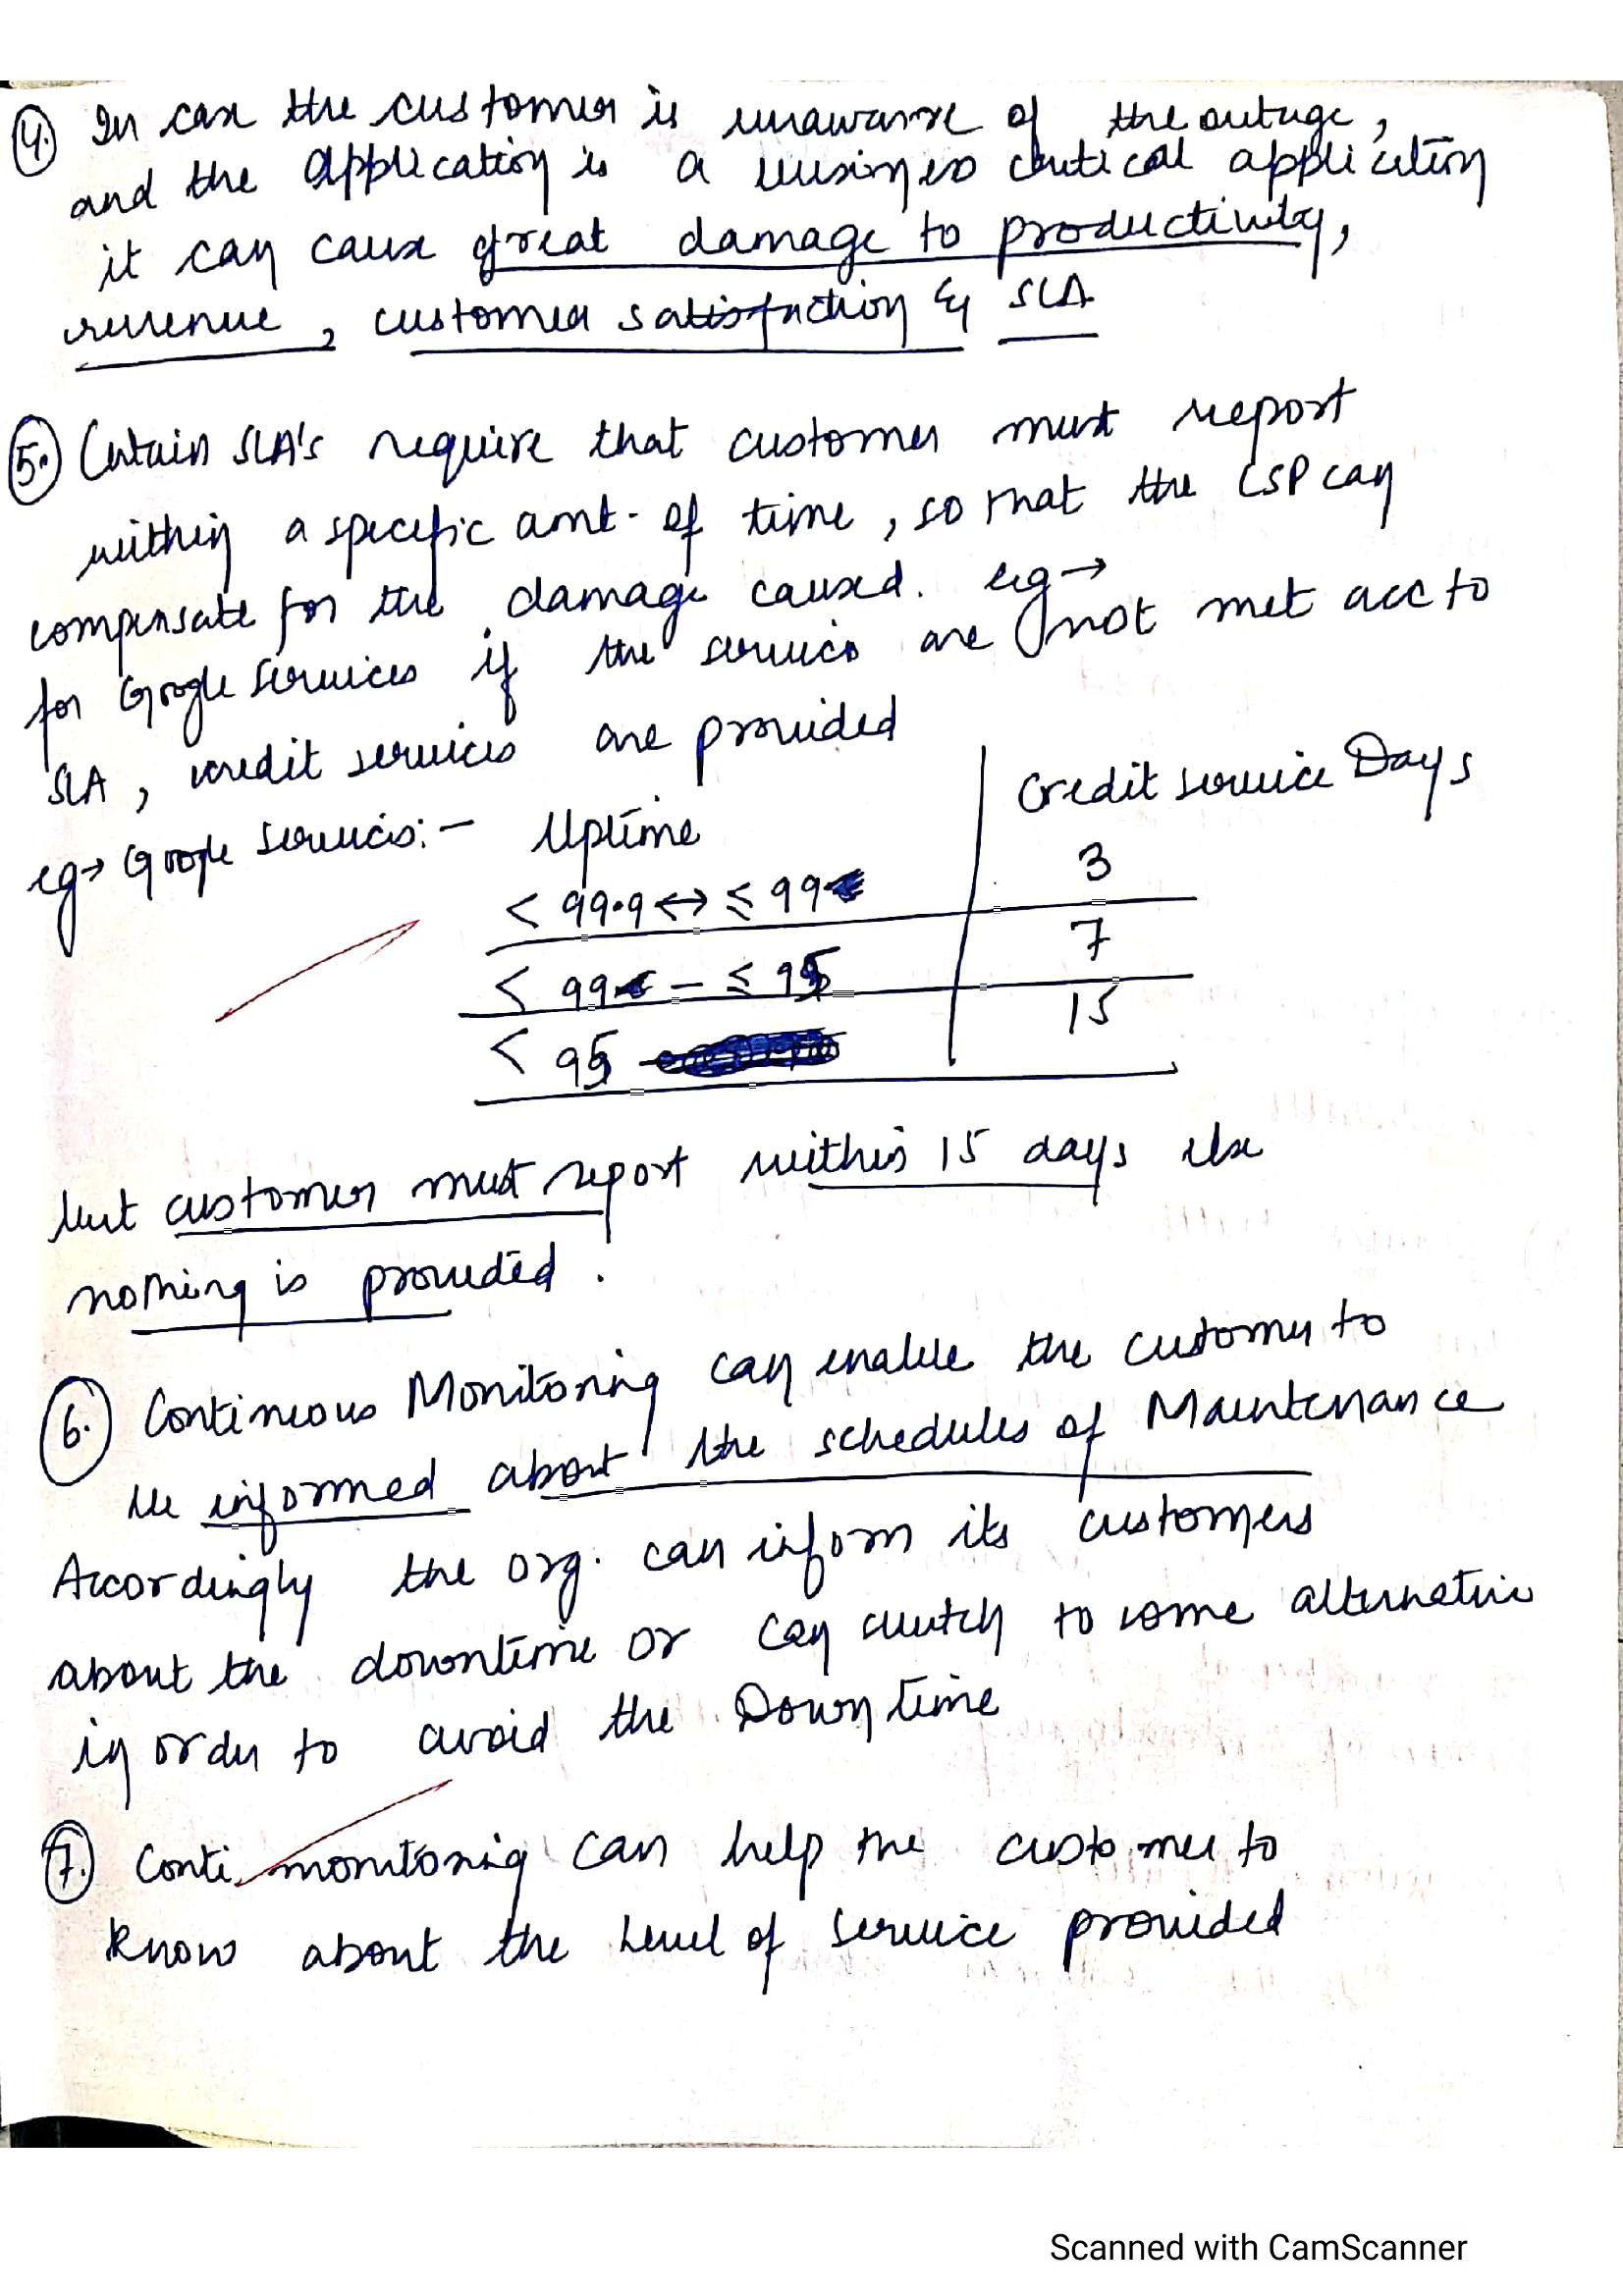 4. In case the customer is unaware of the outage,
and the application is a business critical application
it can cause great damage to productivity,
revenue, customer satisfaction & SLA
5. Certain SLA's require that customer must report
within a specific amt. of time, so that the CSP can
compensate for the damage caused. eg →
for Google services if the services are not met acc to
SLA, credit services are provided
eg → Google services:- Uptime | Credit service Days
< 99.9 ↔ ≤ 99 | 3
< 99 - ≤ 95 | 7
< 95 | 15
but customer must report within 15 days else
nothing is provided.
6. Contineous Monitoring can enable the customer to
be informed about the schedules of Maintenance
Accordingly the org. can inform its customers
about the downtime or can switch to some alternative
in order to avoid the Downtime
7. Conti. monitoring can help the customer to
know about the level of service provided
Scanned with CamScanner